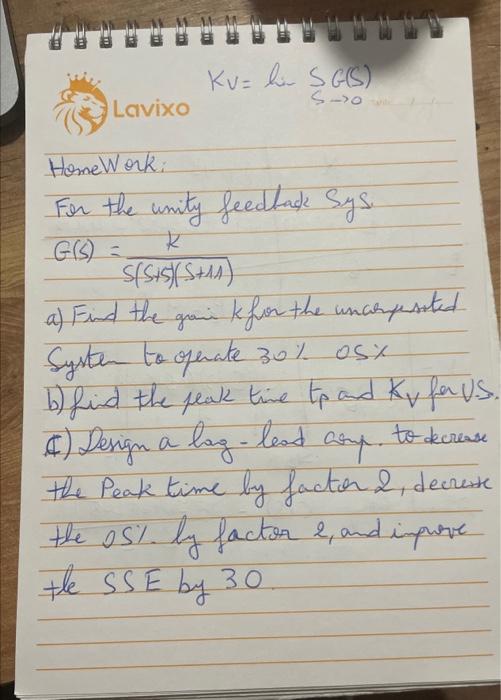 Kv = lim S G(S)
S→0
Lavixo
HomeWork:
For the unity feedback Sys.
G(S) = K
S(S+5)(S+11)
a) Find the gain K for the uncompensated
System to operate 30% OS%
b) find the peak time tp and Kv for US.
C) Design a lag-lead comp. to decrease
the Peak time by factor 2, decrease
the OS% by factor 2, and improve
the SSE by 30